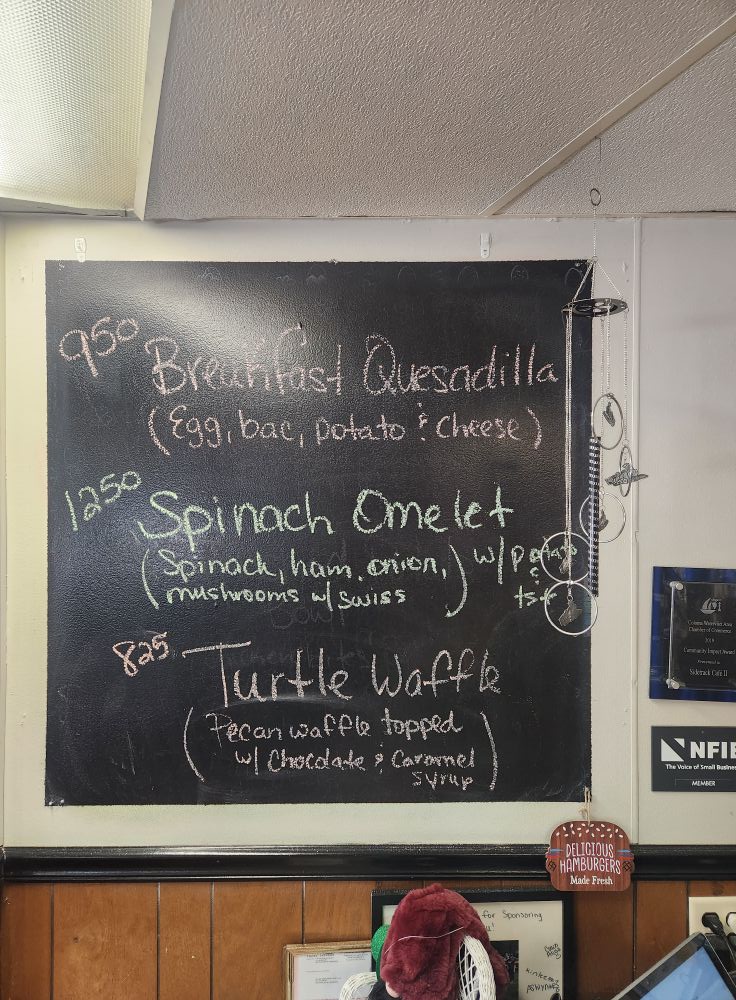 950 Breakfast Quesadilla
(Egg, bac, potato & cheese)
1250 Spinach Omelet
(Spinach, ham, onion,
mushrooms w/ swiss)
w/ potato
&
tst
825 Turtle Waffle
(Pecan waffle topped
w/ Chocolate & Caramel
syrup)
Coloma-Watervliet Area
Chamber of Commerce
2019
Community Impact Award
Presented to
Sidetrack Café II
NFIB
The Voice of Small Business
MEMBER
DELICIOUS
HAMBURGERS
Made Fresh
for Sponsoring